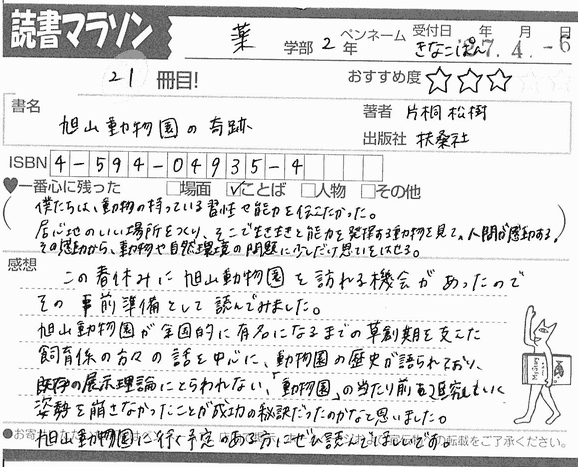 読書マラソン 薬 学部 2年 ペンネーム きなこぽん 受付日 年 月 日 7.4.-6
21 冊目! おすすめ度 ☆☆☆
書名 旭山動物園の奇跡 著者 片桐松樹
出版社 扶桑社
ISBN 4-594-04935-4
♥一番心に残った □場面 ☑ことば □人物 □その他
(僕たちは、動物の持っている習性や能力を伝えたかった。
居心地のいい場所をつくり、そこで生き生きと能力を発揮する動物を見て、人間が感動する。
その感動から、動物や自然環境の問題に少しだけ思いをはせる。)
感想
この春休みに旭山動物園を訪れる機会があったので
その事前準備として読んでみました。
旭山動物園が全国的に有名になるまでの草創期を支えた
飼育係の方々の話を中心に、動物園の歴史が語られており、
既存の展示理論にとらわれない、「動物園」の当たり前を追究していく
姿勢を崩さなかったことが成功の秘訣だったのかなと思いました。
旭山動物園に行く予定のある方にぜひ読んでほしいです。
●お寄せ の転載をご了承ください。